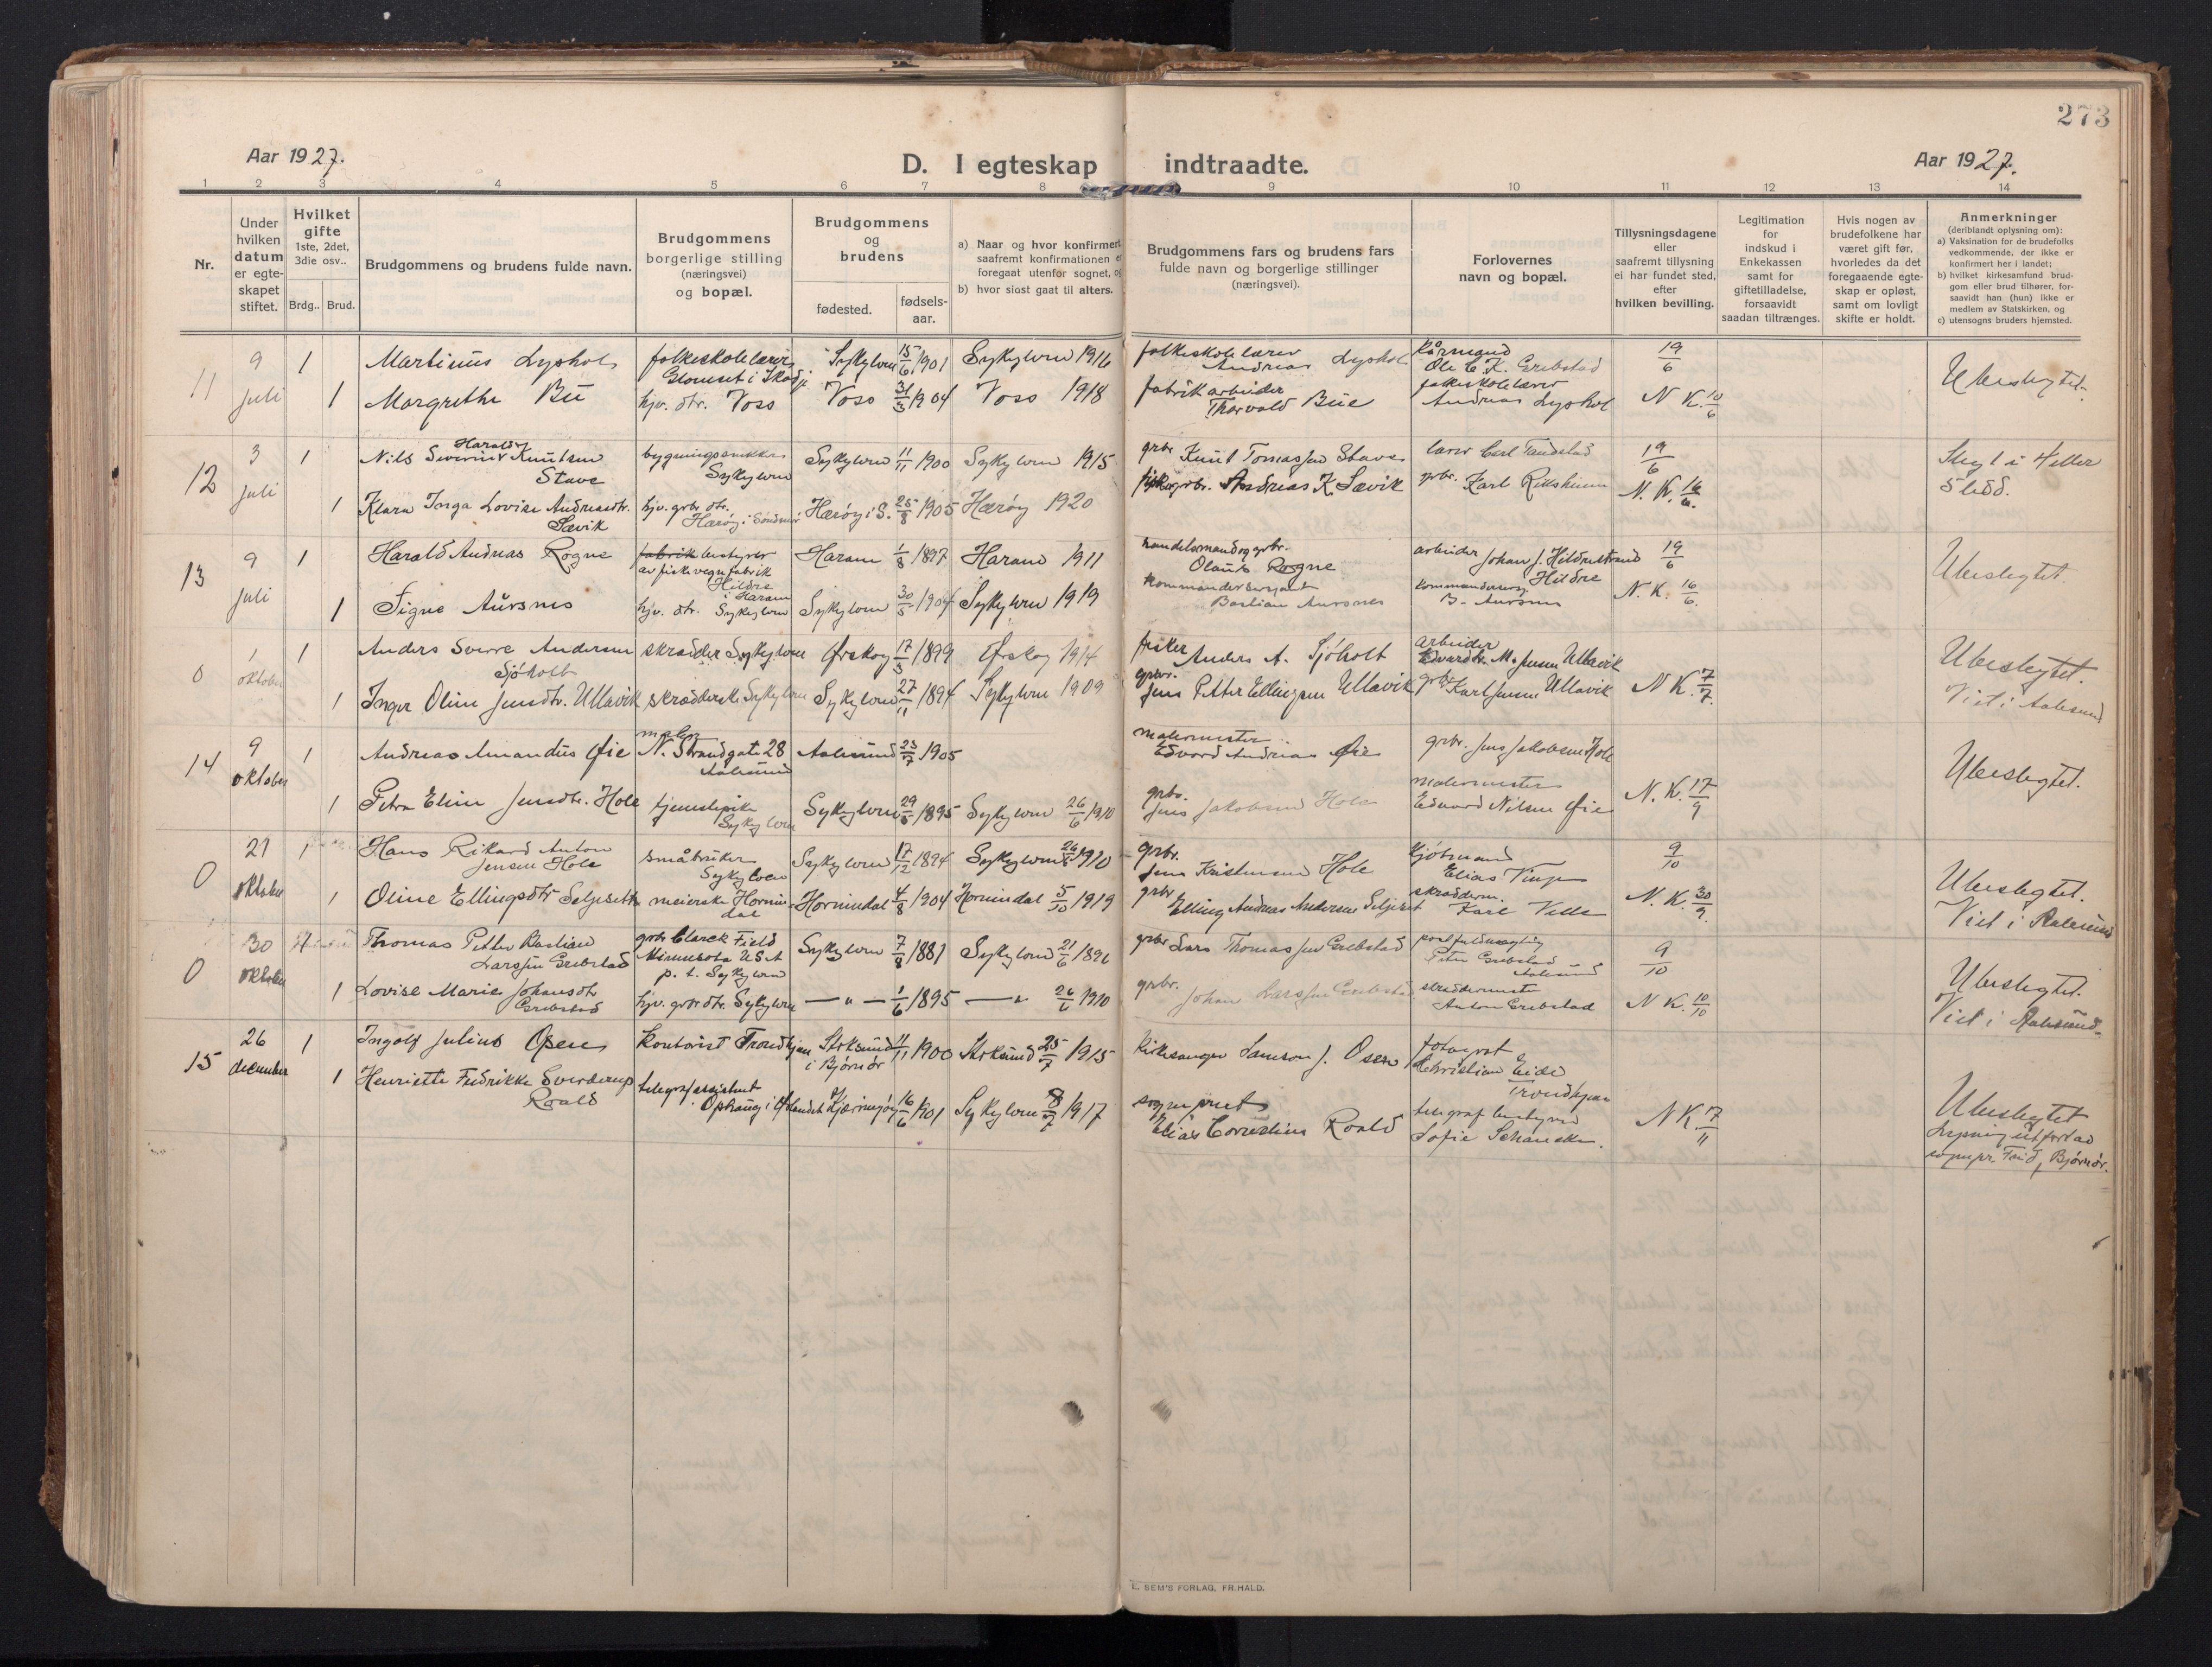 273
Aar 1927.
D. I egteskap indtraadte.
Aar 1927.
1 2 3 4 5 6 7 8 9 10 11 12 13 14
Nr.
Under hvilken datum er egte-skapet stiftet.
Hvilket gifte
1ste, 2det, 3die osv..
Brdg.. Brud.
Brudgommens og brudens fulde navn.
Brudgommens borgerlige stilling (næringsvei) og bopæl.
Brudgommens og brudens
fødested.
fødsels-aar.
a) Naar og hvor konfirmert
saafremt konfirmationen
foregaat utenfor sognet,
b) hvor sidst gaat til alters.
Brudgommens fars og brudens fars
fulde navn og borgerlige stillinger
(næringsvei).
Forlovernes
navn og bopæl.
Tillysningsdagene
eller
saafremt tillysning
ei har fundet sted,
efter
hvilken bevilling.
Legitimation
for
indskud i
Enkekassen
samt for
giftetilladelse,
forsaavidt
saadan tiltrænges.
Hvis nogen av
brudefolkene har
været gift før,
hvorledes da det
foregaaende egte-
skap er opløst,
samt om lovligt
skifte er holdt.
Anmerkninger
(deriblandt oplysning om):
a) Vaksination for de brudefolks
vedkommende, der ikke er
konfirmert her i landet;
b) hvilket kirkesamfund brud-
gom eller brud tilhører, for-
saavidt han (hun) ikke er
medlem av Statskirken, og
c) utensogns bruders hjemsted.
11 9 juli 1 Martinus Lyshol folkeskolelærer Sykylven 15/6 1901 Sykylven 1916 folkeskolelærer Andreas Lyshol Ole C. K. Grebstad 19/6 Ubeslegtet.
1 Margrethe Bu hjv. dtr. Voss Voss 31/3 1904 Voss 1918 fabrikarbeider Thorvald Bue folkeskolelærer Andreas Lyshol N K. 10/6
12 3 juli 1 Nils Severin Harald Knutsen Stave bygningssnikker Sykylven Sykylven 11/11 1900 Sykylven 1915 grbr Knut Tomassen Stave lærer Carl Tandstad 19/6
1 Klara Inga Lovise Andreasdtr. Sævik hjv. grbr dtr. Herøy i Søndmør Herøy i S. 25/8 1905 Herøy 1920 Andreas K. Sævik grbr. Karl Riksheim N. K. 16/6. 5 ledd.
13 9 juli 1 Harald Andreas Rogne bestyrer av fiskevegnfabrik Hildre i Haram Haram 1/8 1897 Haram 1911 handelsmand og grbr. Olaus Rogne arbeider Johan J. Hildrestrand Hildre 19/6 Ubeslegtet.
1 Signe Aursnes hjv. dtr. Sykylven Sykylven 30/5 1904 Sykylven 1919 kommandersersjant Bastian Aursnes kommandersersj. B. Aursnes N. K. 16/6.
0 1 oktober 1 Anders Sverre Andersen Sjøholt skrædder Sykylven Ørskog 17/3 1899 Ørskog 1914 fisker Anders A. Sjøholt arbeider Ullavik Ubeslegtet.
1 Inger Oline Jensdtr. Ullavik skrædderske Sykylven Sykylven 27/11 1894 Sykylven 1909 grbr. Jens Petter Ellingsen Ullavik grbr Karl Jensen Ullavik N K. 7/7. Viet i Aalesund
14 9 oktober 1 Andreas Amandus Øie maler N. Strandgate 28 Aalesund Aalesund 23/7 1905 malermester Edvard Andreas Øie grbr. Jens Jakobsen Hole Ubeslegtet.
1 Petra Eline Jensdtr. Hole tjenestepike Sykylven Sykylven 29/5 1895 Sykylven 26/6 1910 grbr. Jens Jakobsen Hole malermester Edvard Nilsen Øie N. K. 17/9
0 21 oktober 1 Hans Rikard Anton Jensen Hole småbruker Sykylven Sykylven 17/12 1894 Sykylven 26/6 1910 grbr. Jens Kristensen Hole Elias Vinje 9/10 Ubeslegtet.
1 Oline Ellingsdtr Seljeseth meierske Hornindal Hornindal 4/8 1904 Hornindal 5/10 1919 grbr Elling Andreas Andersen Seljeset skrædderm. Karl Velle N. K. 30/9. Viet i Aalesund
0 30 oktober Thomas Petter Bastian Larssen Grebstad grbr Clarck Field Minnesota U S A p. t. Sykylven Sykylven 7/8 1881 Sykylven 21/6 1896 grbr Lars Thomassen Grebstad Peter Grebstad Aalesund 9/10 Ubeslegtet.
1 Lovise Marie Johansdtr Grebstad hjv. grbr dtr. Sykylven — " — 1/6 1895 — " 26/6 1910 grbr. Johan Larssen Grebstad skræddermester Anton Grebstad N K. 10/10 Viet i Aalesund
15 26 december 1 Ingolf Julius Osen kontorist Trondhjem Stoksund i Bjørnør 11/11 1900 Stoksund 25/7 1915 kirkesanger Samson J. Osen fotograf Christian Eide Trondhjem
1 Henriette Fredrikke Sverderup Roald telegrafassistent Kjerringøy 16/6 1901 Sykylven 8/7 1917 sogneprest Elias Cornelius Roald telegraf bestyrer Sofie Schancke. N K. 17/11 Ubeslegtet Lysning utført av sognepr. Bjørnør.
E. SEM'S FORLAG, FR.HALD.